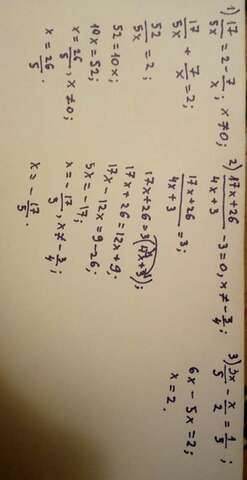 1) 17/5x = 2 - 7/x; x ≠ 0;
17/5x + 7/x = 2;
52/5x = 2;
52 = 10x;
10x = 52;
x = 26/5, x ≠ 0;
x = 26/5.
2) (17x+26)/(4x+3) - 3 = 0, x ≠ -3/4;
(17x+26)/(4x+3) = 3;
17x+26 = 3(4x+3);
17x+26 = 12x+9;
17x - 12x = 9 - 26;
5x = -17;
x = -17/5, x ≠ -3/4;
x = -17/5.
3) 3x/5 - x/2 = 1/5;
6x - 5x = 2;
x = 2.